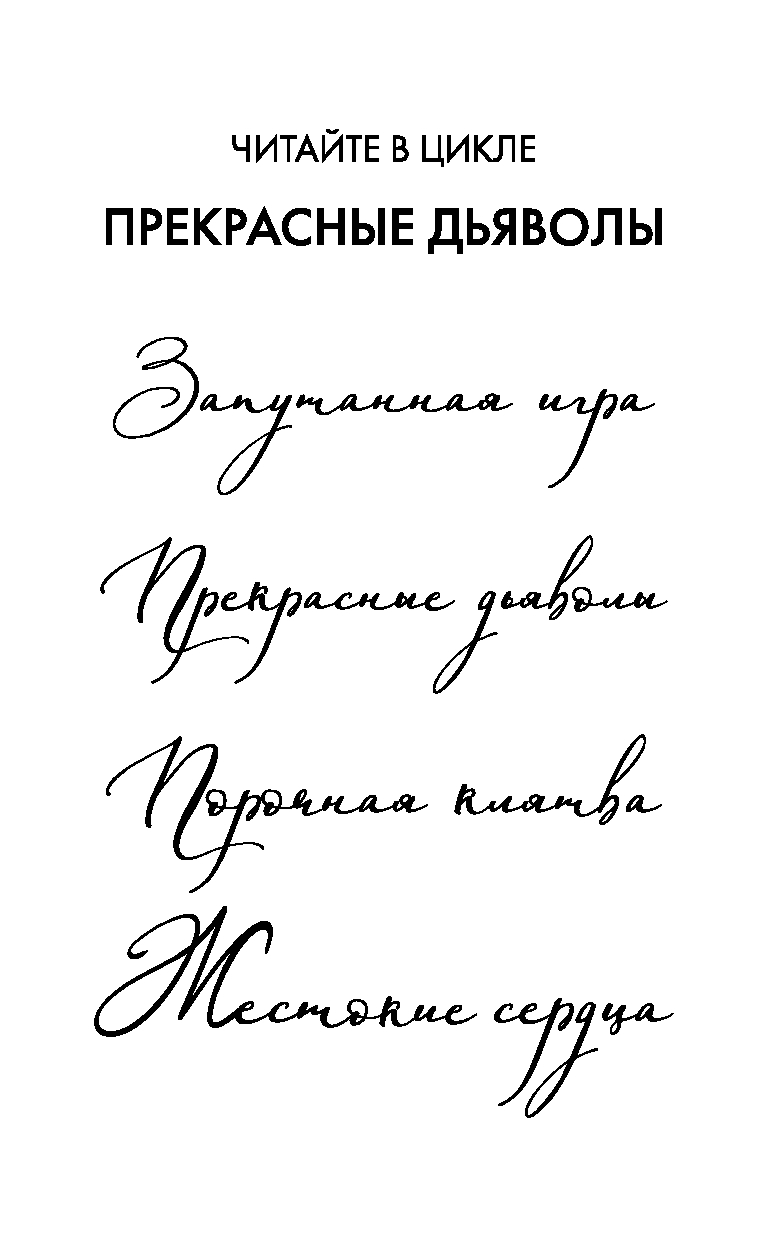 ЧИТАЙТЕ В ЦИКЛЕ
ПРЕКРАСНЫЕ ДЬЯВОЛЫ
Запутанная игра
Прекрасные дьяволы
Порочная клятва
Жестокие сердца